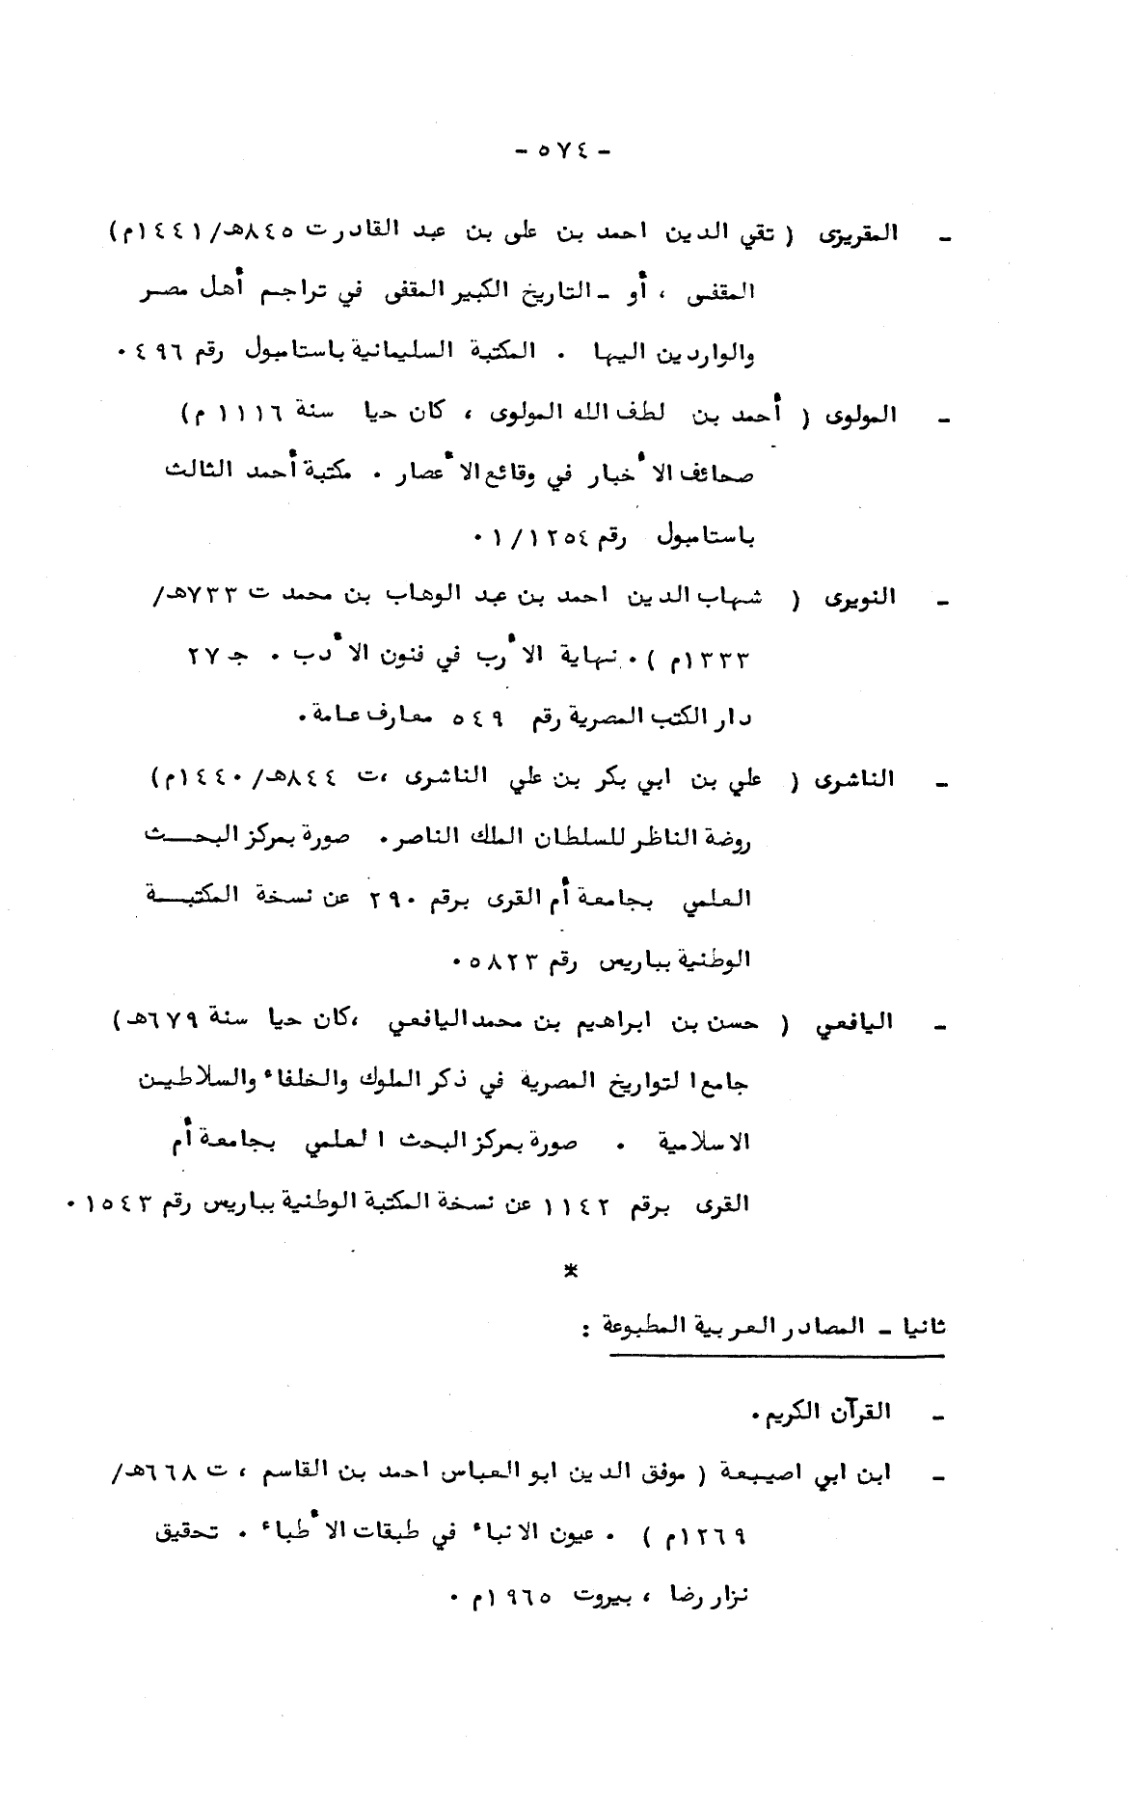 - ٥٧٤ -
- المقريزى ( تقي الدين احمد بن على بن عبد القادر ت ٨٤٥هـ/١٤٤١م)
المقفى ، أو - التاريخ الكبير المقفى في تراجم أهل مصر
والواردين اليها . المكتبة السليمانية باستامبول رقم ٤٩٦.
- المولوى ( أحمد بن لطف الله المولوى ، كان حيا سنة ١١١٦ م)
صحائف الأخبار في وقائع الأعصار . مكتبة أحمد الثالث
باستامبول رقم ١/١٢٥٤.
- النويرى ( شهاب الدين احمد بن عبد الوهاب بن محمد ت ٧٣٣هـ/
١٣٣٣م ) . نهاية الأرب في فنون الأدب . جـ ٢٧
دار الكتب المصرية رقم ٥٤٩ معارف عامة.
- الناشرى ( علي بن ابي بكر بن علي الناشرى ،ت ٨٤٤هـ/١٤٤٠م)
روضة الناظر للسلطان الملك الناصر. صورة بمركز البحث
العلمي بجامعة أم القرى برقم ٢٩٠ عن نسخة المكتبة
الوطنية بباريس رقم ٥٨٢٣.
- اليافعي ( حسن بن ابراهيم بن محمد اليافعي ،كان حيا سنة ٦٧٩هـ)
جامع التواريخ المصرية في ذكر الملوك والخلفاء والسلاطين
الاسلامية . صورة بمركز البحث العلمي بجامعة أم
القرى برقم ١١٤٢ عن نسخة المكتبة الوطنية بباريس رقم ١٥٤٣.
*
ثانيا - المصادر العربية المطبوعة :
- القرآن الكريم.
- ابن ابي اصيبعة ( موفق الدين ابو العباس احمد بن القاسم ، ت ٦٦٨هـ/
١٢٦٩م ) . عيون الانباء في طبقات الأطباء . تحقيق
نزار رضا ، بيروت ١٩٦٥م .